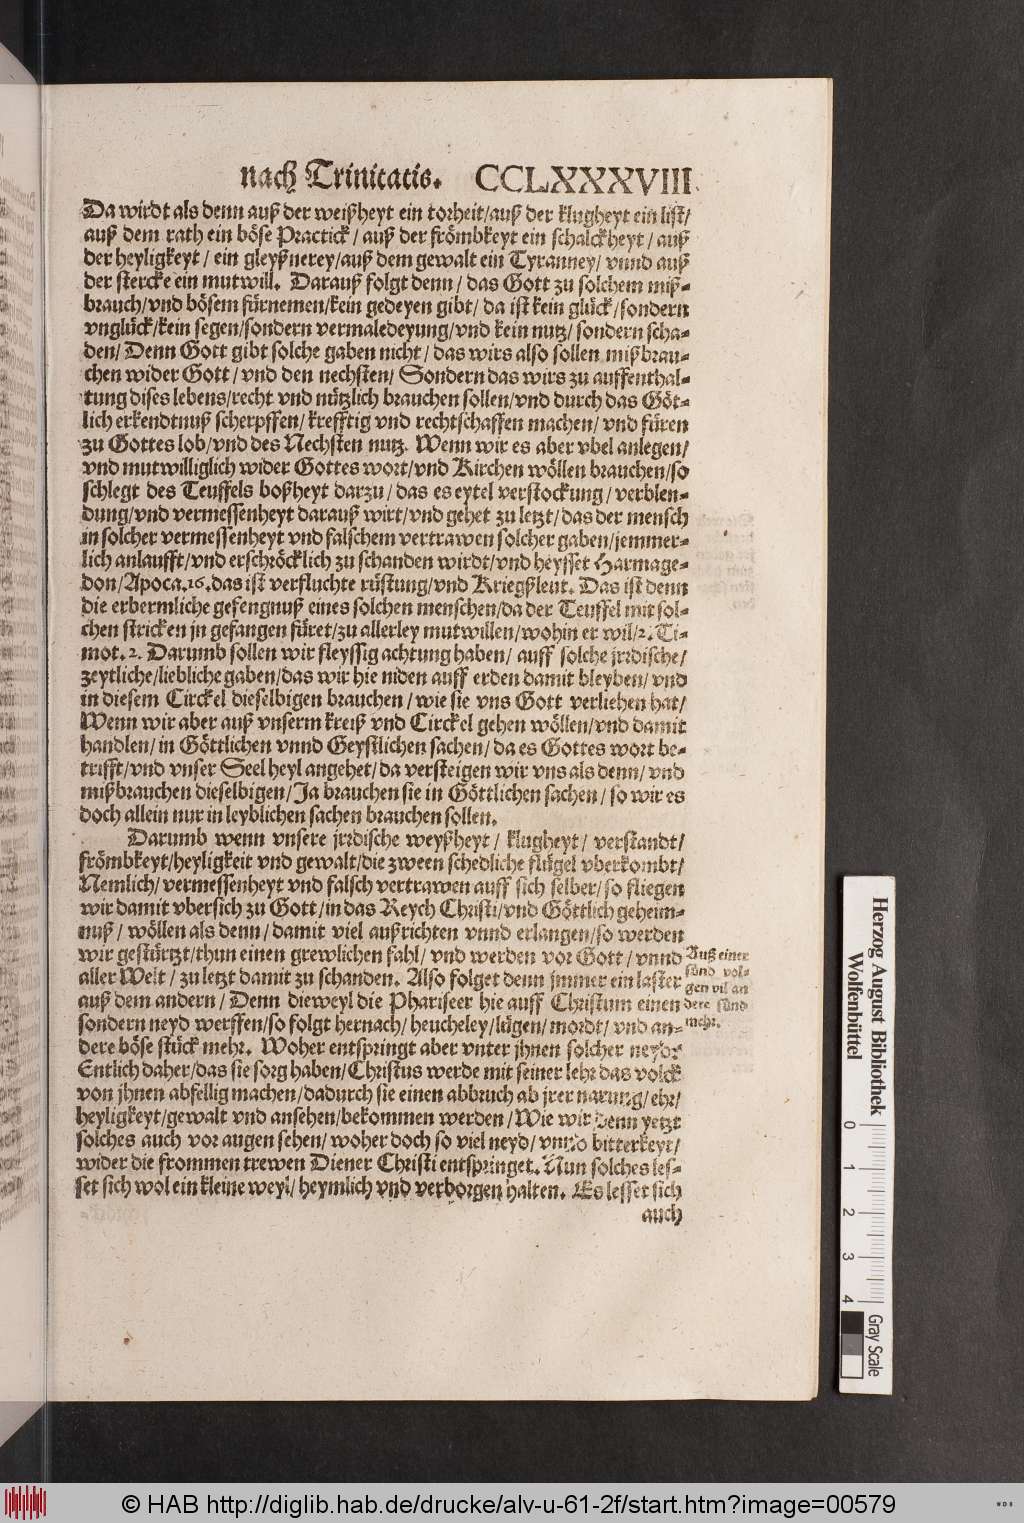 nach Trinitatis. CCLXXXVIII
Da wirdt als denn auß der weißheyt ein torheit/auß der klugheyt ein list/
auß dem rath ein böse Practick / auß der frömbkeyt ein schalckheyt / auß
der heyligkeyt / ein gleyßnerey/auß dem gewalt ein Tyranney/ vnnd auß
der stercke ein mutwill. Darauß folgt denn / das Gott zu solchem miß-
brauch/vnd bösem fürnemen/kein gedeyen gibt/ da ist kein glück/sondern
vnglück/kein segen/sondern vermaledeyung/vnd kein nutz/ sondern scha-
den/ Denn Gott gibt solche gaben nicht / das wirs also sollen mißbrau-
chen wider Gott / vnd den nechsten/ Sondern das wirs zu auffenthal-
tung dises lebens/recht vnd nützlich brauchen sollen/vnd durch das Göt-
lich erkendtnuß scherpffen/ krefftig vnd rechtschaffen machen/ vnd füren
zu Gottes lob/vnd des Nechsten nutz. Wenn wir es aber vbel anlegen/
vnd mutwilliglich wider Gottes wort/vnd Kirchen wöllen brauchen/so
schlegt des Teuffels boßheyt darzu / das es eytel verstockung / verblen-
dung/vnd vermessenheyt darauß wirt/vnd gehet zu letzt/das der mensch
in solcher vermessenheyt vnd falschem vertrawen solcher gaben/jemmer-
lich anlaufft/vnd erschröcklich zu schanden wirdt/vnd heysset Harmage-
don/Apoca.16.das ist verfluchte rüstung/vnd Kriegßleut. Das ist denn
die erbermliche gefengnuß eines solchen menschen/da der Teuffel mit sol-
chen stricken jn gefangen füret/zu allerley mutwillen/wohin er wil/2. Ti-
mot.2. Darumb sollen wir fleyssig achtung haben/ auff solche jrrdische/
zeytliche/liebliche gaben/das wir hie niden auff erden damit bleyben/ vnd
in diesem Circkel dieselbigen brauchen / wie sie vns Gott verliehen hat/
Wenn wir aber auß vnserm kreiß vnd Circkel gehen wöllen/vnd damit
handlen/ in Göttlichen vnnd Geystlichen sachen/ da es Gottes wort be-
trifft/vnd vnser Seel heyl angehet/da versteigen wir vns als denn/ vnd
mißbrauchen dieselbigen/ Ja brauchen sie in Göttlichen sachen / so wir es
doch allein nur in leyblichen sachen brauchen sollen.
Darumb wenn vnsere jrrdische weyßheyt / klugheyt / verstandt/
frömbkeyt/heyligkeit vnd gewalt/die zween schedliche flügel vberkombt/
Nemlich/ vermessenheyt vnd falsch vertrawen auff sich selber/ so fliegen
wir damit vbersich zu Gott/in das Reych Christi/vnd Göttlich geheim-
nuß / wöllen als denn / damit viel außrichten vnnd erlangen/so werden
wir gestürtzt/thun einen grewlichen fahl/ vnd werden vor Gott / vnnd
aller Welt / zu letzt damit zu schanden. Also folget denn jmmer ein laster
auß dem andern / Denn dieweyl die Phariseer hie auff Christum einen
sondern neyd werffen/so folgt hernach/ heucheley/lügen/ mordt/ vnd an-
dere böse stück mehr. Woher entspringt aber vnter jhnen solcher
Entlich daher/das sie sorg haben/Christus werde mit seiner lehr das volck
von jhnen abfellig machen/dadurch sie einen abbruch ab jrer narung/ehr/
heyligkeyt/gewalt vnd ansehen/bekommen werden / Wie wir denn yetzt
solches auch vor augen sehen/ woher doch so viel neyd/ bitterkeyt/
wider die frommen trewen Diener Christi entspringet. Nun solches les-
set sich wol ein kleine weyl/ heymlich vnd verborgen halten. Es lesset sich
auch
Auß einer
sünd vol-
gen vil an
dere sünd
mehr.
Herzog August Bibliothek
Wolfenbüttel
0 1 2 3 4
Gray Scale
© HAB http://diglib.hab.de/drucke/alv-u-61-2f/start.htm?image=00579
WDB